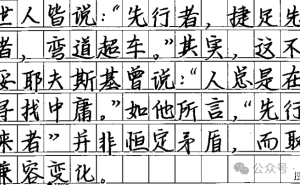 世人皆说:“先行者,捷足先
者,弯道超车。”其实,这不
妥耶夫斯基曾说:“人总是在
寻找中庸。”如他所言,“先行
来者”并非恒定矛盾,而取
兼容变化。
公众号